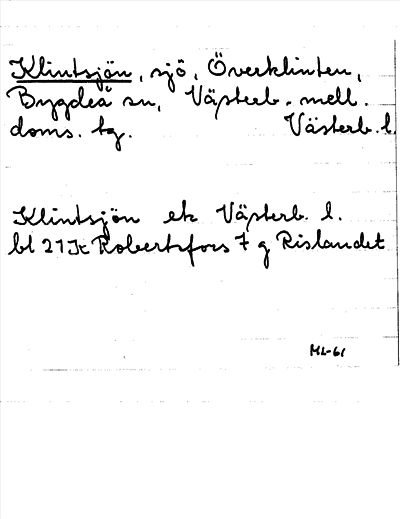 Klintsjön, sjö, Överklinten,
Bygdeå sn, Västerb. mell.
doms. tg. Västerb. l.
Klintsjön ek Västerb. l.
bl 21K Robertsfors 7 g Rislandet
ML-61